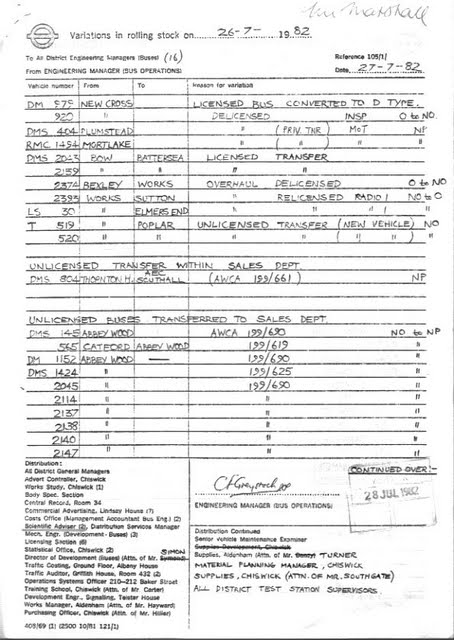 Mr Marshall
Variations in rolling stock on 26-7- 1982
To All District Engineering Managers (Buses) (16)
Reference 105/1/
From ENGINEERING MANAGER (BUS OPERATIONS)
Date, 27-7-82
Vehicle number From To Reason for variation
DM 979 NEW CROSS LICENSED BUS CONVERTED TO D TYPE.
920 " DELICENSED INSP O to NO.
DMS 404 PLUMSTEAD " (PRIV. TNR) MOT NP
RMC 1494 MORTLAKE " ( " ) " "
DMS 2043 BOW BATTERSEA LICENSED TRANSFER
2159 " " " "
2374 BEXLEY WORKS OVERHAUL DELICENSED O to NO
2395 WORKS SUTTON " RELICENSED RADIO 1 NO to O
LS 30 " ELMERS END " " "
T 519 " POPLAR UNLICENSED TRANSFER (NEW VEHICLE) NO
520 " " " " ( " " ) "
UNLICENSED TRANSFER WITHIN SALES DEPT
DMS 804 THORNTON H. AEC SOUTHALL (AWCA 199/661) NP
UNLICENSED BUSES TRANSFERRED TO SALES DEPT.
DMS 145 ABBEY WOOD AWCA 199/690 NO to NP
565 CATFORD ABBEY WOOD 199/619 "
DM 1152 ABBEY WOOD — 199/690 "
DMS 1424 " 199/625 "
2045 " 199/690 "
2114 " "
2137 " "
2138 " "
2140 " "
2147 " "
CONTINUED OVER:-
28 JUL 1982
ENGINEERING MANAGER (BUS OPERATIONS)
Distribution:
All District General Managers
Advert Controller, Chiswick
Works Study, Chiswick (1)
Body Spec. Section
Central Record, Room 34
Commercial Advertising, Lindsey House (7)
Costs Office (Management Accountant Bus Eng.) (2)
Scientific Adviser (2), Distribution Services Manager
Mech. Engr. (Development - Buses) (3)
Licensing Section (6)
Statistical Office, Chiswick (2) SIMON
Director of Development (Buses) (Attn. of Mr.
Traffic Costing, Ground Floor, Albany House
Traffic Auditor, Griffith House, Room 432 (2)
Operations Systems Officer 210-212 Baker Street
Training School, Chiswick (Attn. of Mr. Carter)
Development Engr., Signalling, Telstar House
Works Manager, Aldenham (Attn. of Mr. Hayward)
Purchasing Officer, Chiswick (Attn. of Mr. Hiller)
Distribution Continued
Senior Vehicle Maintenance Examiner
Supplies Development, Chiswick
Supplies, Aldenham (Attn. of Mr. TURNER
MATERIAL PLANNING MANAGER, CHISWICK
SUPPLIES, CHISWICK (ATTN. OF MR. SOUTHGATE)
ALL DISTRICT TEST STATION SUPERVISORS.
408/69 (1) (2500 10/81 121/1)